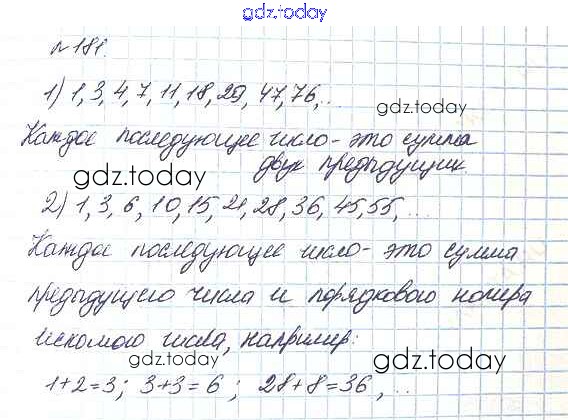 gdz.today
№ 181.
1) 1, 3, 4, 7, 11, 18, 29, 47, 76, ...
gdz.today
Каждое последующее число - это сумма
двух предыдущих.
gdz.today
2) 1, 3, 6, 10, 15, 21, 28, 36, 45, 55, ...
Каждое последующее число - это сумма
предыдущего числа и порядкового номера
искомого числа, например:
gdz.today gdz.today
1+2=3; 3+3=6; 28+8=36, ...